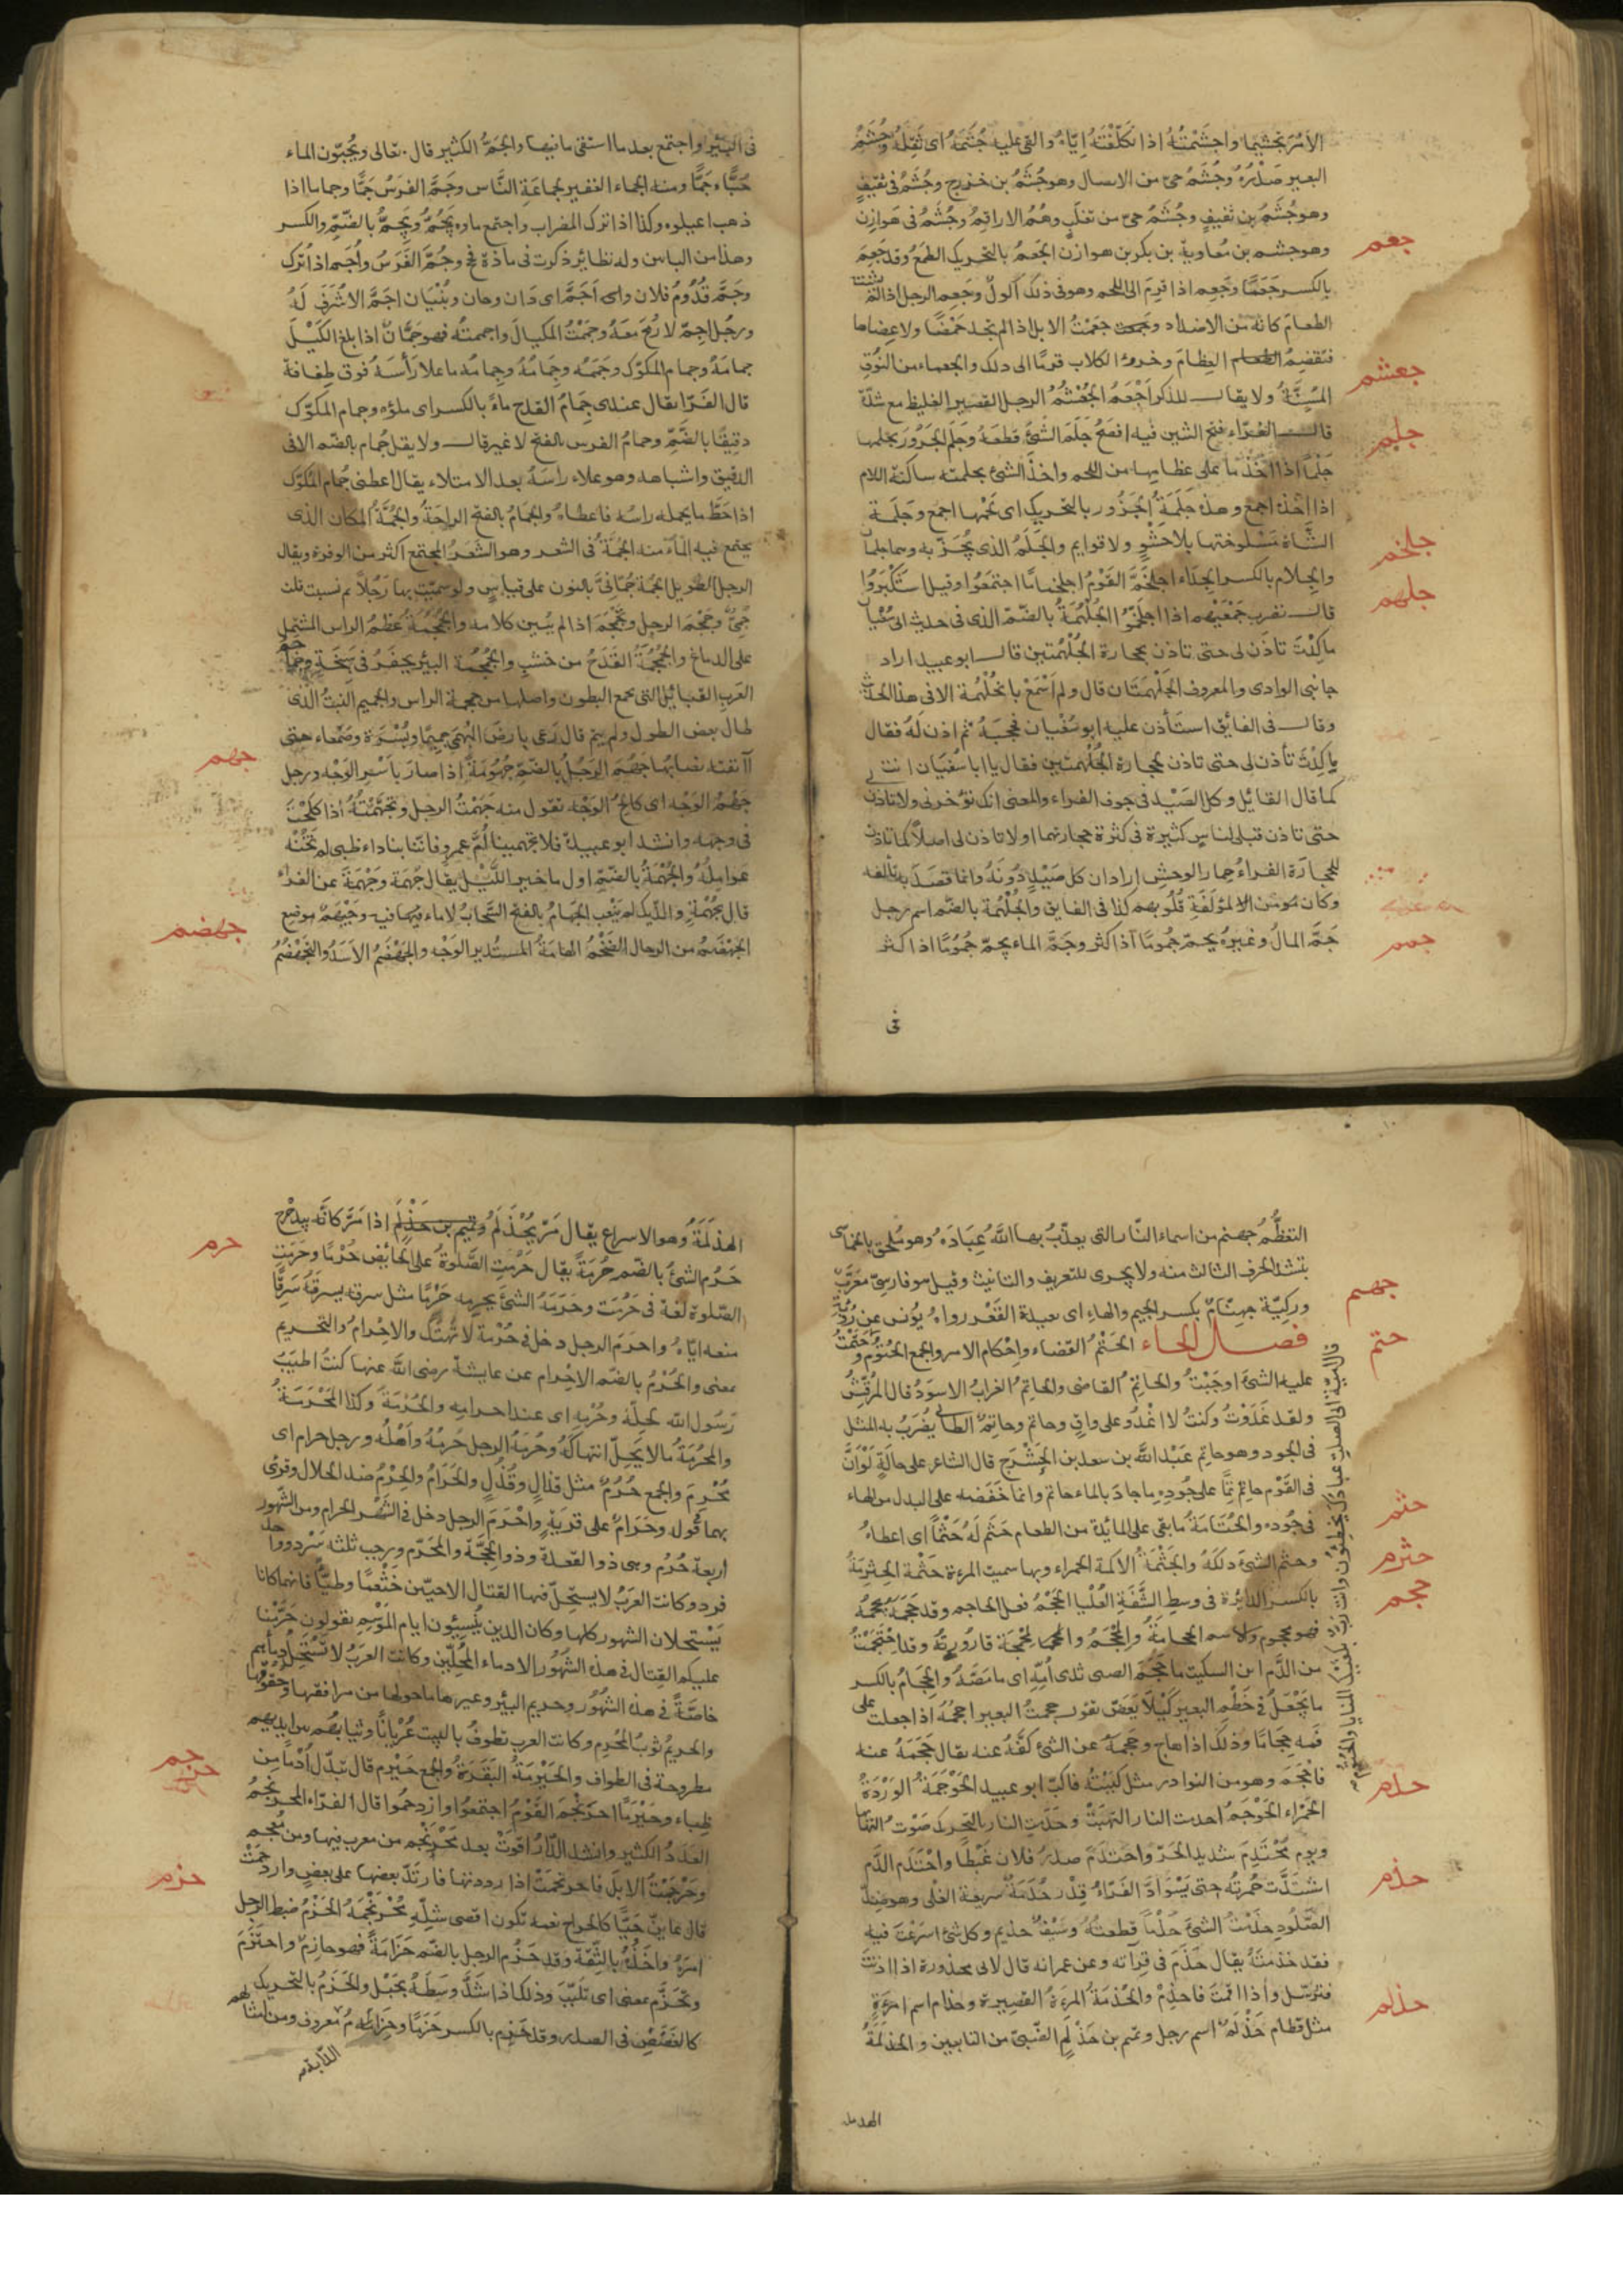 الامْرَ تجشيما واجشَمْتُهُ اذا تكلّفْتَهُ ايّاه والقى عليه جُشَمَهُ اى ثَقَلَهُ وجُشَمُ
البعير صَدْرُهُ وجُشَمُ حىّ من الانصار وهو جُشَمُ بن خزرج وجُشَمُ فى ثقيفٍ
وهو جُشَمُ بن ثقيفٍ وجُشَمُ حىّ من تغلبٍ وهُمُ الاراقِمُ وجُشَمُ فى هَوازِن
جعم
وهو جشم بن مُعاوية بن بكر بن هوازن الجَعَمُ بالتحريك الطمعُ وقد جَعِمَ
بالكسر جَعَمًا وجَعِم اذا قرِمَ الى اللحم وهو فى ذلك اكولٌ وجَعِم الرجل اذا لم يشته
الطعامَ كانه من الاضداد وجعمت الابل اذا لم تجد حَمْضًا ولا عِضاها
فتقضمُ العِظامَ وخروء الكلاب قرمًا الى ذلك والجعماء من النُوقِ
جعشم
المُسِنَّةُ ولا يقال للذكر اَجْعَمُ الجُعْشُمُ الرجل القصير الغليظ مع شدّة
جلم
قال الفرّاء فتح الشين فيه افصَحُ جَلَمَ الشئَ قطعَهُ وجَلَمَ الجَزُورَ يجلمها
جَلْمًا اذا اخذ ما على عظامها من اللحم واخذَ الشئ بجلمته ساكنة اللام
اذا اخذه اجمع وهذه جَلَمَةُ الجَزُور بالتحريك اى لَحْمُها اجمع وجَلَمَة
جلخم
الشَّاة مَسْلوختها بلا حَشْوٍ ولا قوايم والجَلَمُ الذى يُجَزّ به وهما جلمان
والجِلام بالكسر الجِدَاء اجلَخَمَّ القَوْمُ اجلخماما اجتمَعُوا وقيل استَكْبَرُوا
جلهم
قال نضرب جَمْعَيْهم اذا اجلَخَمّوا الجُلْهُمَةُ بالضّمّ الذى فى حديث ابى سُفيان
ماكِدْتَ تاذَن لى حتى تاذن لحجارة الجُلْهُمتين قال ابو عبيد اراد
جانبى الوادى والمعروف الجَلْهَتان قال ولم اَسْمَعْ بالجُلْهُمة الا فى هذا الحديث
وقال فى الفائق استَأذن عليه ابو سُفيان فحجَبَهُ ثم اذن له فقال
ماكِدْتَ تأذن لى حتى تاذن لحجارة الجُلْهُمَتين فقال يا ابا سُفيَان انت
كما قال القائل وكل الصَيْد فى جوف الفراء والمعنى انك تؤخرنى ولا تاذن
حتى تاذن قبلى لناس كثيرة فى كثرة حجارتهما اولا تاذن لى اصلًا كما لا تاذن
للحجارة الفراءُ حمار الوحش اراد ان كل صَيْدٍ دُونَهُ وانما قصَدَ به تالفه
وكان من المؤلَّفَةِ قُلُوبهم كذا فى الفايق والجُلْهُمة بالضّم اسم رجل
جمم
جَمَّ المالُ وغيرُهُ يجمّ جُمُومًا اذا كثر وجَمَّ الماء يجمّ جُمُومًا اذا كثر
فى
فى البئر واجتمع بعد ما استقى ما فيها والجَمُّ الكثير قال تعالى ويُحِبّون المال
حُبًّا جَمًّا ومنه الجماء الغفير لجماعَةِ النَّاس وجَمَّ الفرَسُ جَمًّا وجماما اذا
ذهب اعياؤه وكذا اذا ترك الضراب واجتمع ماؤه يَجُمُّ ويَجِمُّ بالضَّمِّ والكسر
وهذا من الباس وله نظائر ذكرت فى مادّة ۞ وجُمَّ الفَرَسُ واُجم اذا تُرِك
وجَمَّ قُدُومُ فلان واى اَجَمَّ اى دَان وحان وبُنْيَان اجَمُّ لا شُرَفَ لَهُ
ورجُل اجمّ لا رُمحَ معَهُ وجمَمْتُ المكيالَ واجممتُه فهو جَمَّانٌ اذا بلغ الكَيْلَ
جمامَهُ وجمام المكّوك وجَمَمُه وجَمَامُهُ وجِمامُه ما علا رَأْسَهُ فوق طِفافه
قال الفَرّا يقال عندى جِمَامُ القَدح ماءً بالكسر اى ملؤه وجمام المكّوك
دقيقًا بالضّمِّ وجمامُ الفرس بالفتح لا غير قال ولا يقل جُمام بالضّم الا فى
الدقيق واشباهه وهو علاء راسَهُ بعد الامتلاء يقال اعطنى جُمام المكّوك
اذا حَطَّ ما يحمله راسُه فاعطاهُ والجَمامُ بالفتح الراحَةُ والجُمَّةُ المكان الذى
يجتمع فيه الماء منه الجُمَّةُ فى الشعر وهو الشَعَرُ المجتمع اكثر من الوفرة ويقال
الرجل الطويل الجمة جُمّانىّ بالنون على قياسٍ ولو سميّت بها رَجُلًا ثم نسبت قلت
جُمِّىّ وجَمْجَمَ الرجل وتجمْجَمَ اذا لم يُبين كلامه والجُمْجُمَةُ عظمُ الراس المشتمل
على الدماغ والجُمْجُمَةُ القَدَحُ من خشب والجُمْجُمة البئر يحفَرُ فى سَبخَةٍ وجماجم
العَربِ القبائلُ التى تجمع البطون واصلها من جمجمة الراس والجميم النبتُ الذى
طال بعض الطول ولم يتم قال رَعى بارِضَ البُهْمَى جميمًا وبُسْرَةً وصَمْعاء حتى
جهم
آنفته نصالُها جَهُمَ الرَجُلُ بالضّمِ جُهُومَةً اذا صارَ باَسِرَ الوَجْه ورجل
جَهْمُ الوَجْه اى كالحُ الوَجْه تقول منه جَهَمْتُ الرجل وتجَهَّمْتُهُ اذا كلَحْتَ
فى وجهه وانشد ابو عبيدة فلا تجهمينا اُمَّ عمرٍو فانّنا بنا داء ظبى لم تَخُنْهُ
عَوامِلُهُ والجُهْمَةُ بالضّمّ اول ماخير اللَّيْل يقال جُهمَة وجَهْمَة عن الفراء
قال بجُهْمَةٍ والدّيك لم يَنْعب الجَهَامُ بالفتح السَّحَابُ لا ماء فيها وجَيْهَمُ موضع
جهضم
الجَهْضَمُ من الرجال الضَّخْمُ الهامَةُ المستدير الوَجْه والجَهْضَمُ الاَسَدُ والتَّجَهْضُمُ
التعظُّمُ جهنم من اسماء النّار التى يعذّبُ بها اللّٰهُ عِبَادَهُ وهو مُلحَق بالخماسى
جهنم
بتشد الحرف الثالث منه ولا يجرى للتعريف والتانيث وقيل هو فارسىّ معرّبٌ
وركِيّة جِهِنّامٌ بكسر الجيم والهاء اى بعيدة القَعْر رواه يُونس عن رُؤبة
حتم
فصل الحاء الحَتْمُ القضاء واِحْكام الامر والجمع الحُتُوْمُ وحَتَمْتُ
عليه الشئ اوجَبْتُ والحاتِمُ القاضى والحاتِمُ الغرابُ الاسوَدُ قال المُرقّشُ
ولقد غَدَوْتُ وكنتُ لا اغدُو على واقٍ وحاتم وحاتِمُ الطائى يُضرَبُ به المثل
فى الجود وهو حاتم عَبْد اللّٰه بن سعد بن الحَشْرَج قال الشاعر على حالَةٍ لَوْ اَنَّ
فى القَوْم حاتِمًا على جُودِهِ ما جادَ بالماء حاتم وانما خَفَضه على البدل من الهاء
حثم
فى جُوده والحُتَامَةُ ما بقى على المائدة من الطعام حَثَم لَهُ حَثْمًا اى اعطاهُ
حثرم
وحثم الشئَ دلكَهُ والحَثْمَةُ الاكمة الحمراء وبها سميت المرءة حَثْمَة الحِثرِمَةُ
حجم
بالكسر الدائرة فى وسطِ الشَّفَةِ العُلْيا الحَجْمُ فعل الحاجم وقد حَجَمَهُ يحجمُهُ
فهو محجوم والاسم الحِجامَةُ والمِحْجَمُ والمِحْجَمَة قارُورتُه وقد احْتَجَمْتُ
من الدَّم ابن السكيت ما حَجَمَ الصبى ثدى اُمّهِ اى ما مَصَّهُ والحِجَامُ بالكسر
ما يُجْعَلُ فى خَطْم البعير كَيْلَا يَعَضّ تقول حجمتُ البعير احجمُهُ اذا جعلت على
فَمه حِجامًا وذلك اذا هاج وحَجمهُ عن الشئ كفَّهُ عنه يقال حَجَمَهُ عنه
حدم
فاحْجَمَ وهو من النوادر مثل كبَبْتُهُ فاكبّ ابو عبيد الحَوْجَمَةُ الوَرْدَةُ
الحَمْرَاء الحَوْجَمُ احدمت النار التهَبَتْ وحَدَمَةِ النار بالتحريك صَوْتُ التهابها
ويوم مُحْتَدِمٌ شديد الحَرّ واحتدَمَ صدرُ فلان غَيْظًا واحْتَدَم الدّم
حذم
اشتدَّت حُمرتُه حتى يَسْوَادَّ الفَرّاءُ قِدْر حُدَمَةٌ سريعَة الغَلْى وهو ضِدّ
الصَّلُود حذَمْتُ الشئَ حَذْمًا قطعتُهُ وسَيْفٌ حذيم وكل شئ اسرَعْتَ فيه
فقد حذمتَهُ يقال حَذَمَ فى قِراته وعن عمر انه قال لابى محذورة اذا اذنتَ
حذلم
فترسّل واذا اقمتَ فاحذِمْ والحُذَمَةُ المرءةُ القصيرة وحذام اسم امرءةٍ
مثل قطام حَذْلَمٌ اسم رجل وتميم بن حَذْلَمٍ الضّبىّ من التابعين والحَذْلَمَةُ
الهدملـ
الهذلَمَةُ وهو الاسراع يقال مَرّ يُحَذْلِمُ وتميم بن حَذْلَم اذا مَرَّ كانّه يتدحرج
حرم
حَرُم الشئُ بالضّم حُرمَةً يقال حَرُمَتِ الصَّلوةُ على الحائِض حُرْمًا وحَرِمَتِ
الصّلوة لغة فى حَرُمَت وحَرَمَهُ الشئَ يحرِمه حَرِمًا مثل سرقه يسرِقهُ سَرِقًا
منعه ايّاهُ واحرَمَ الرجل دخل فى حُرْمة لا تُهتَك والاِحْرامُ والتحريم
بمعنى والحُرْمُ بالضّم الاِحْرام عن عايشة رضى اللّٰه عنها كنتُ اطيّبُ
رَسُول اللّٰه لحلّهِ وحُرْمِه اى عند احرامِه والحُرْمَةُ وكذا المَحْرَمَةُ
والمَحْرُمَةُ ما لا يَحِلّ انتهاكُهُ وحُرْمَةُ الرجل حَرَمُهُ وأهْلُه ورجل حرام اى
مُحْرِمٌ والجمع حُرُمٌ مثل قذالٍ وقُذُلٍ والحَرَامُ والحِرْمُ ضد الحلال وقرئ
بهما قُوله وحَرَامٌ على قريةٍ واَحْرَمَ الرجل دخل فى الشَّهْر الحرام ومن الشّهور
اربعة حُرُم وهى ذوا القعدة وذو الحِجَّة والمحَرّم ورجب ثلثة سَرْد وواحد
فرد وكانت العَرَبُ لا يستحِلّ فيها القتال الا حيّين خَثْعمًا وطيّئًا فانهما كانا
يَسْتحلان الشهور كلها وكان الذين يُنسِئون ايام المَوْسِم يقولون حَرَّمْنا
عليكم القِتال فى هذه الشّهُور الا دماء المُحِلّين وكانت العَرَبُ لا تَسْتَحِلّ دمآءهم
خاصَّةً فى هذه الشّهُور وحريم البئر وغيرها ما حولها من مرافقها وحقوقها
والحريمُ ثوبُ المُحْرِم وكانت العرب تطوفُ بالبيت عُرْيانًا وثيابُهم بين ايديهم
مطروحة فى الطواف والحَيْرَمَةُ البَقَرَةُ والجمع حَيْرم قال تبدّل اُدْمًا من
حرجم
ظِباء وحَيْرَمًا احرَنْجَمَ القَوْمُ اجتمَعُوا وازدحمُوا قال الفرّاء المحرنجِمُ
العَدَدُ الكثير وانشد الدّارُ اقوَتْ بعد مُحْرَنْجِم من معرب فيها ومن مُعجم
حزم
وحَرْجَمْتُ الابل فاحرنجمَتْ اذا رددتها فارتدّ بعضها على بعضٍ واردحمَتْ
قال عاينّ حَيًّا كالحراج نعمه تكون اقصى شلِّهِ مُحْرَنْجَمُهُ الحَزْمُ ضبط الرجل
امرَهُ واخذُهُ بالثقَة وقد حَزُم الرجل بالضّم حَزَامَةً فهو حازِمٌ واحتَزَمَ
وتحزَّم بمعنى اى تَلَبّبَ وذلك اذا شَدَّ وسَطَهُ بحَبْلٍ والحَزَمُ بالتحريك
كالغَصَصِ فى الصدر وقد حَزِم بالكسر حَزَمًا وحِزامُ الدّابة مُعروف ومن امثالهم